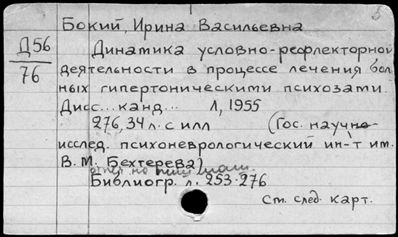 Бокий, Ирина Васильевна
Д56
76
Динамика условно-рефлекторной
деятельности в процессе лечения бол
ных гипертоническими психозами.
Дисс... канд... Л, 1955
276, 34 л. с илл (Гос. научно-
исслед. психоневрологический ин-т им.
В. М. Бехтерева)
Библиогр. л. 253-276
См. след. карт.